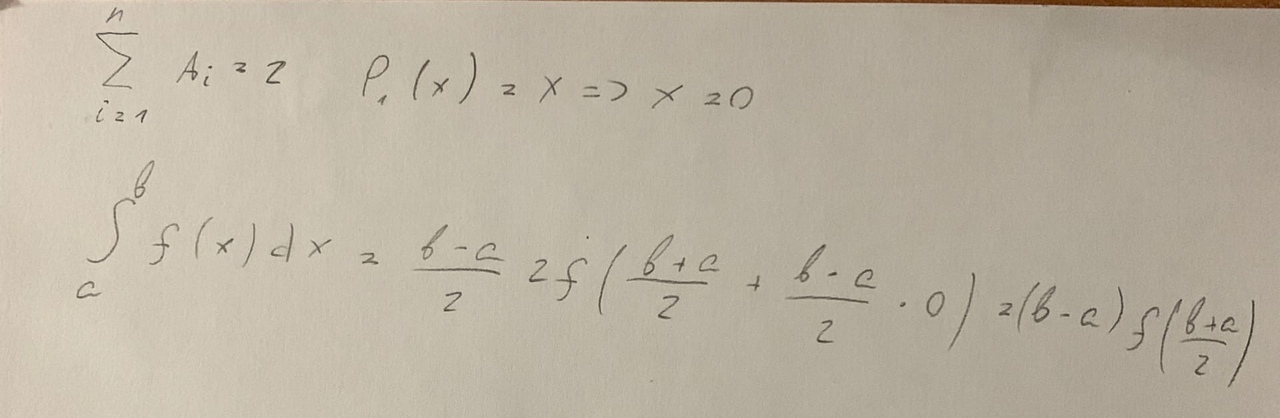 \sum_{i=1}^{n} A_i = 2 \quad P_1(x) = x \Rightarrow x = 0
\int_a^b f(x)dx = \frac{b-a}{2} 2f\left(\frac{b+a}{2} + \frac{b-a}{2} \cdot 0\right) = (b-a) f\left(\frac{b+a}{2}\right)